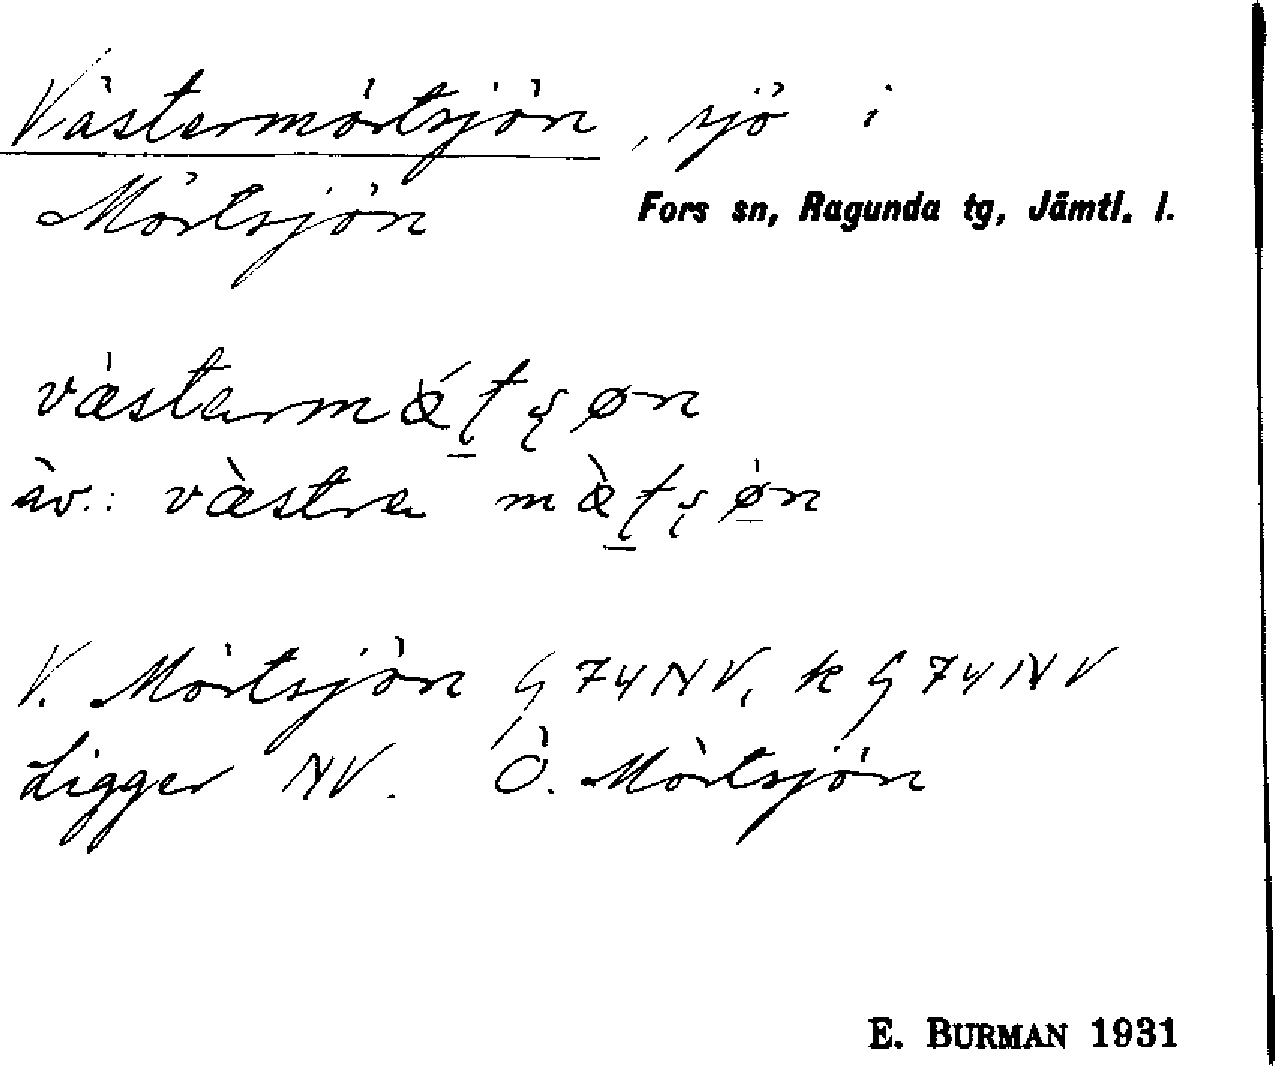 Västermörtsjön, sjö i
Mörtsjön
Fors sn, Ragunda tg, Jämtl. l.
västermǽtʂøn
äv.: västra mæ̀tʂøn
V. Mörtsjön G 74 NV, k G 74 NV
Ligger NV. Ö. Mörtsjön
E. BURMAN 1931